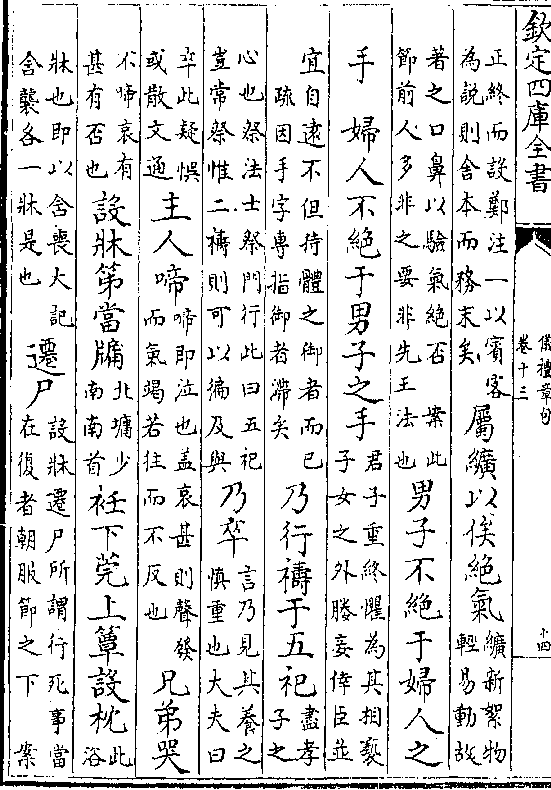 欽定四庫全書
儀禮章句
卷十三
十四
正終而設鄭注一以賓客
為說則舍本而務末矣
屬纊以俟絕氣
纊新絮物
輕易動故
著之口鼻以驗氣絕否　案此
節前人多非之要非先王法也
男子不絕于婦人之
手　婦人不絕于男子之手
君子重終懼為其相褻
子女之外媵妾倖臣並
宜自遠不但持體之御者而已
疏因手字專指御者滯矣
乃行禱于五祀
盡孝
子之
心也祭法士祭門行此曰五祀
豈常祭惟二禱則可以徧及與
乃卒
言乃見其養之
慎重也大夫曰
卒此疑悞
或散文通
主人啼
啼即泣也蓋哀甚則聲發
而氣竭若往而不反也
兄弟哭
不啼哀有
甚有否也
設牀第當牖
北墉少
南南首
衽下莞上簟設枕
此
浴
牀也即以含喪大記
含襲各一牀是也
遷尸
設牀遷尸所謂行死事當
在復者朝服節之下　案